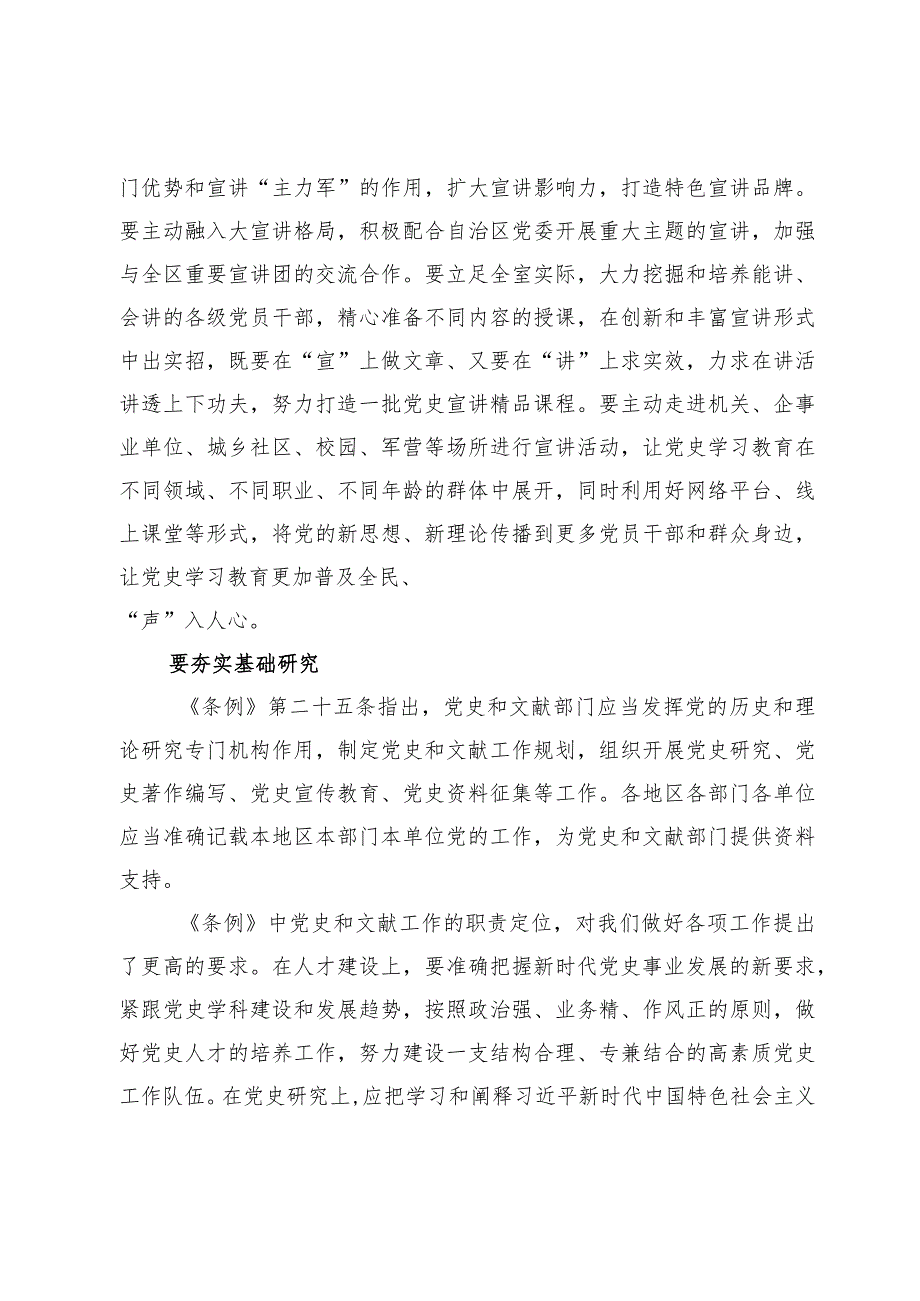 门优势和宣讲“主力军”的作用，扩大宣讲影响力，打造特色宣讲品牌。
要主动融入大宣讲格局，积极配合自治区党委开展重大主题的宣讲，加强
与全区重要宣讲团的交流合作。要立足全室实际，大力挖掘和培养能讲、
会讲的各级党员干部，精心准备不同内容的授课，在创新和丰富宣讲形式
中出实招，既要在“宣”上做文章、又要在“讲”上求实效，力求在讲活
讲透上下功夫，努力打造一批党史宣讲精品课程。要主动走进机关、企事
业单位、城乡社区、校园、军营等场所进行宣讲活动，让党史学习教育在
不同领域、不同职业、不同年龄的群体中展开，同时利用好网络平台、线
上课堂等形式，将党的新思想、新理论传播到更多党员干部和群众身边，
让党史学习教育更加普及全民、
“声”入人心。
要夯实基础研究
《条例》第二十五条指出，党史和文献部门应当发挥党的历史和理
论研究专门机构作用，制定党史和文献工作规划，组织开展党史研究、党
史著作编写、党史宣传教育、党史资料征集等工作。各地区各部门各单位
应当准确记载本地区本部门本单位党的工作，为党史和文献部门提供资料
支持。
《条例》中党史和文献工作的职责定位，对我们做好各项工作提出
了更高的要求。在人才建设上，要准确把握新时代党史事业发展的新要求，
紧跟党史学科建设和发展趋势，按照政治强、业务精、作风正的原则，做
好党史人才的培养工作，努力建设一支结构合理、专兼结合的高素质党史
工作队伍。在党史研究上,应把学习和阐释习近平新时代中国特色社会主义